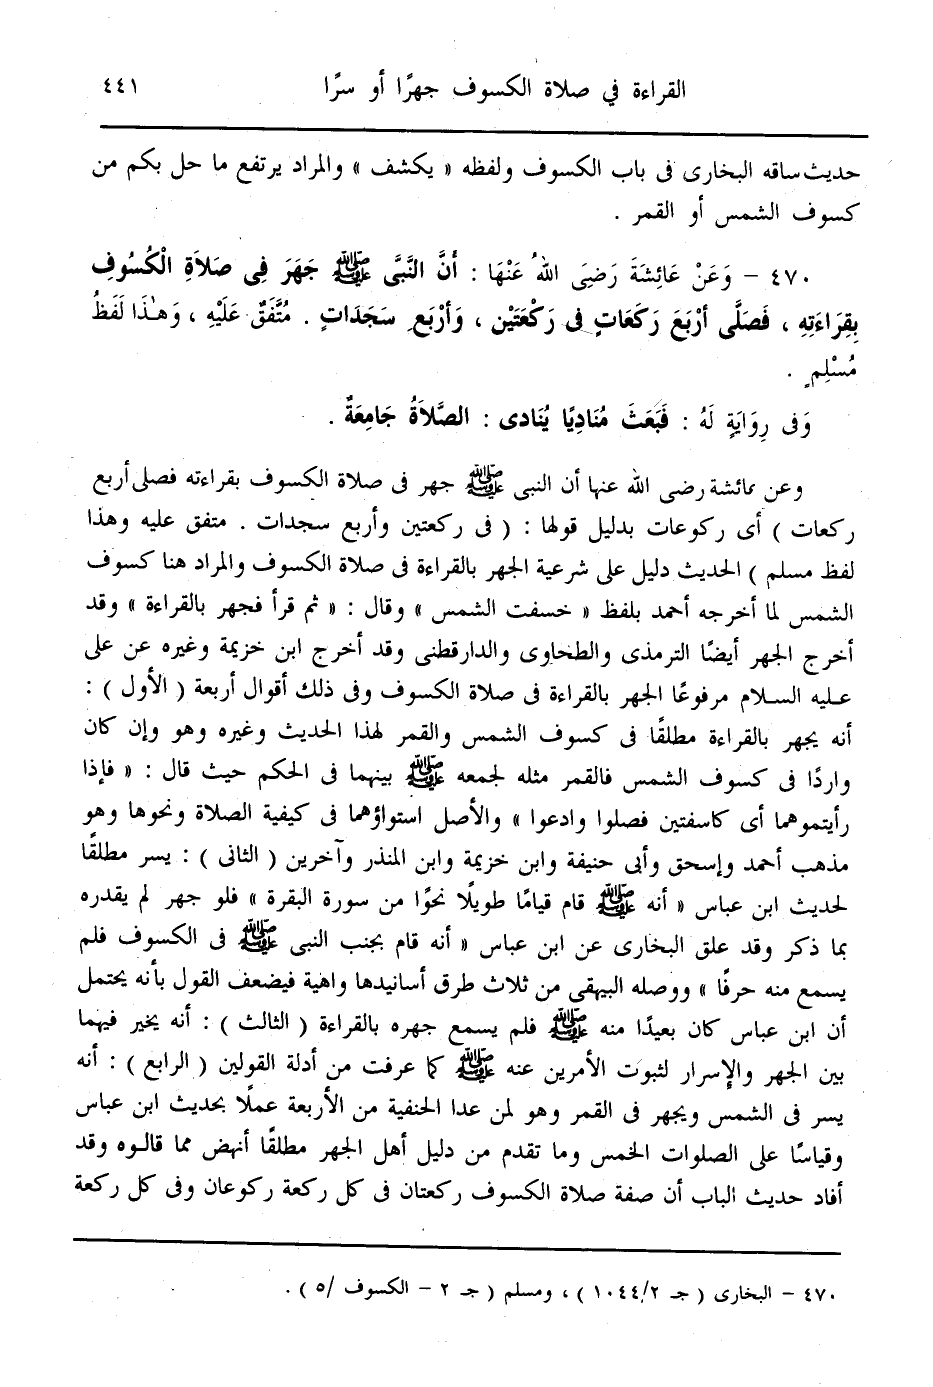 القراءة في صلاة الكسوف جهرًا أو سرًا ٤٤١
حديث ساقه البخارى فى باب الكسوف ولفظه « يكشف » والمراد يرتفع ما حل بكم من
كسوف الشمس أو القمر .
٤٧٠ – وَعَنْ عَائِشَةَ رَضِىَ اللهُ عَنْهَا : أَنَّ النَّبِىَّ ﷺ جَهَرَ فِى صَلَاةِ الْكُسُوفِ
بِقِرَاءَتِهِ ، فَصَلَّى أَرْبَعَ رَكَعَاتٍ فِى رَكْعَتَيْنِ ، وَأَرْبَعِ سَجَدَاتٍ . مُتَّفَقٌ عَلَيْهِ ، وَهٰذَا لَفْظُ
مُسْلِمٍ .
وَفِى رِوَايَةٍ لَهُ : فَبَعَثَ مُنَادِيًا يُنَادِى : الصَّلَاةُ جَامِعَةٌ .
وعن عائشة رضى الله عنها أن النبى ﷺ جهر فى صلاة الكسوف بقراءته فصلى أربع
ركعات ) أى ركوعات بدليل قولها : ( فى ركعتين وأربع سجدات . متفق عليه وهذا
لفظ مسلم ) الحديث دليل على شرعية الجهر بالقراءة فى صلاة الكسوف والمراد هنا كسوف
الشمس لما أخرجه أحمد بلفظ « خسفت الشمس » وقال : « ثم قرأ فجهر بالقراءة » وقد
أخرج الجهر أيضًا الترمذى والطحاوى والدارقطنى وقد أخرج ابن خزيمة وغيره عن على
عليه السلام مرفوعًا الجهر بالقراءة فى صلاة الكسوف وفى ذلك أقوال أربعة ( الأول ) :
أنه يجهر بالقراءة مطلقًا فى كسوف الشمس والقمر لهذا الحديث وغيره وهو وإن كان
واردًا فى كسوف الشمس فالقمر مثله لجمعه ﷺ بينهما فى الحكم حيث قال : « فإذا
رأيتموهما أى كاسفتين فصلوا وادعوا » والأصل استواؤهما فى كيفية الصلاة ونحوها وهو
مذهب أحمد وإسحق وأبى حنيفة وابن خزيمة وابن المنذر وآخرين ( الثانى ) : يسر مطلقًا
لحديث ابن عباس « أنه ﷺ قام قيامًا طويلًا نحوًا من سورة البقرة » فلو جهر لم يقدره
بما ذكر وقد علق البخارى عن ابن عباس « أنه قام بجنب النبى ﷺ فى الكسوف فلم
يسمع منه حرفًا » ووصله البيهقى من ثلاث طرق أسانيدها واهية فيضعف القول بأنه يحتمل
أن ابن عباس كان بعيدًا منه ﷺ فلم يسمع جهره بالقراءة ( الثالث ) : أنه يخير فيهما
بين الجهر والإسرار لثبوت الأمرين عنه ﷺ كما عرفت من أدلة القولين ( الرابع ) : أنه
يسر فى الشمس ويجهر فى القمر وهو لمن عدا الحنفية من الأربعة عملًا بحديث ابن عباس
وقياسًا على الصلوات الخمس وما تقدم من دليل أهل الجهر مطلقًا أنهض مما قالوه وقد
أفاد حديث الباب أن صفة صلاة الكسوف ركعتان فى كل ركعة ركوعان وفى كل ركعة
٤٧٠ – البخارى ( جـ ١٠٤٤/٢ ) ، ومسلم ( جـ ٢ – الكسوف /٥ ) .